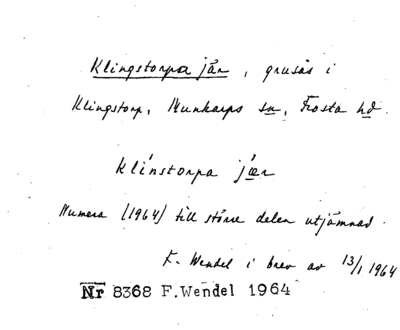 Klingstorpa jär, grusås i
Klingstorp, Munkarps sn, Frosta hd.
klínstorpa jǽr
Numera (1964) till större delen utjämnad.
F. Wendel i brev av 13/1 1964
Nr 8368 F.Wendel 1964